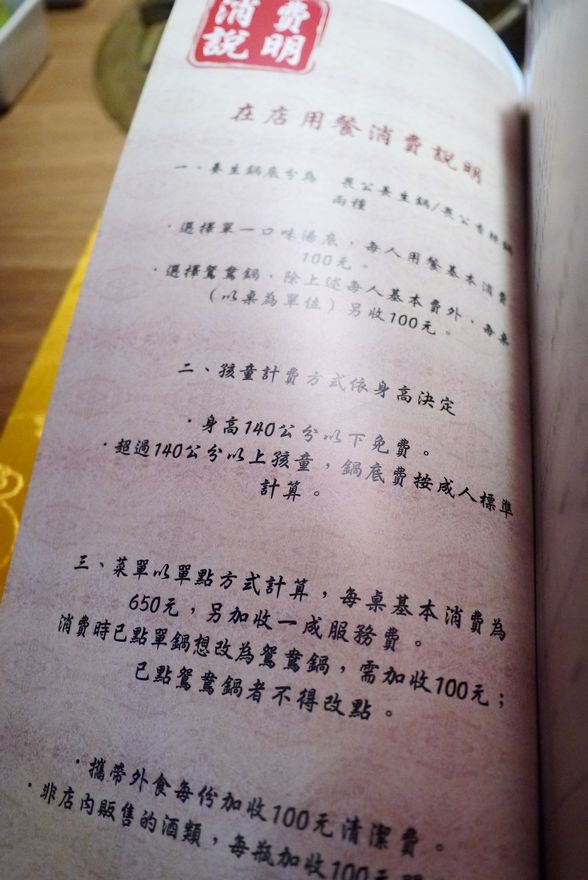 消費
說明
在店用餐消費說明
一、養生鍋底分為 長公養生鍋/長公香辣鍋
兩種
·選擇單一口味湯底，每人用餐基本消費
100元。
·選擇鴛鴦鍋，除上述每人基本費外，每桌
（以桌為單位）另收100元。
二、孩童計費方式依身高決定
·身高140公分以下免費。
·超過140公分以上孩童，鍋底費按成人標準
計算。
三、菜單以單點方式計算，每桌基本消費為
650元，另加收一成服務費。
消費時已點單鍋想改為鴛鴦鍋，需加收100元；
已點鴛鴦鍋者不得改點。
·攜帶外食每份加收100元清潔費。
·非店內販售的酒類，每瓶加收100元